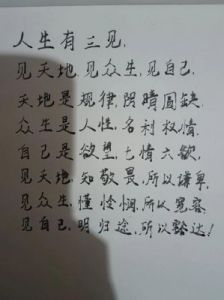 人生有三见，
见天地，见众生，见自己，
天地是规律，阴晴圆缺，
众生是人性，名利权情，
自己是欲望，七情六欲，
见天地，知敬畏，所以谦卑，
见众生，懂怜悯，所以宽容，
见自己，明归途，所以豁达！